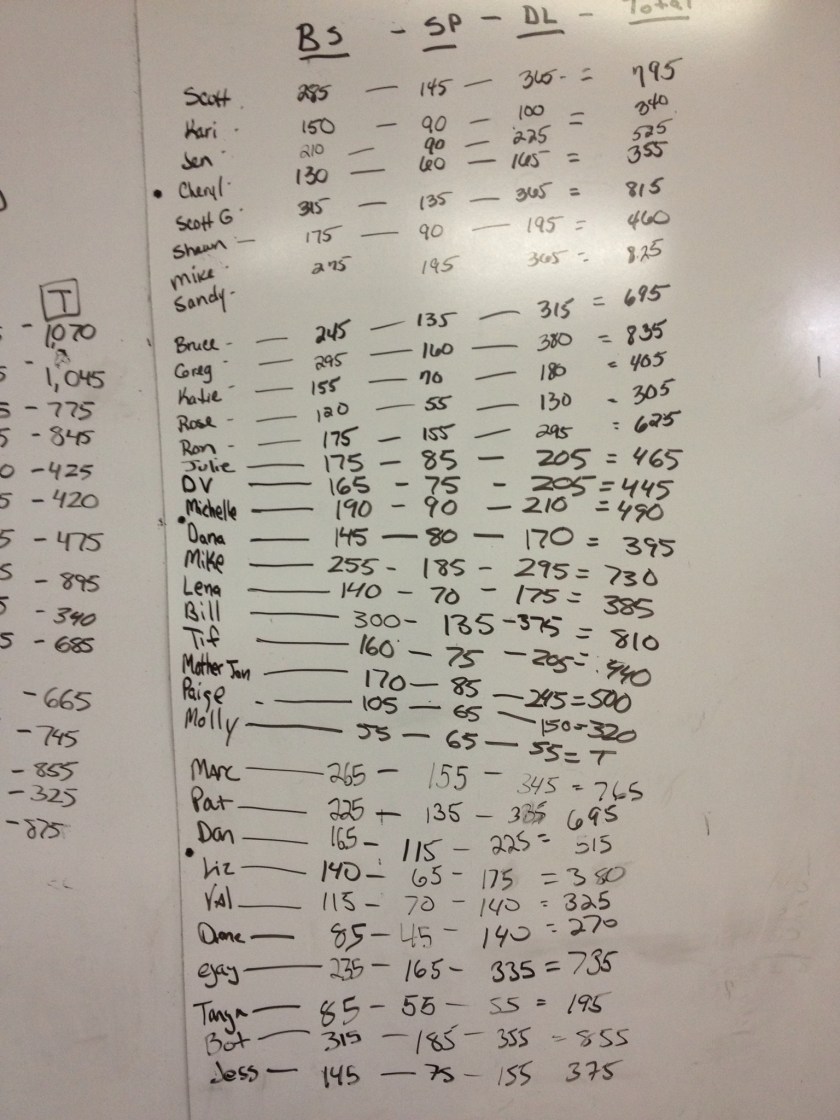 T
- 1070
- 1,045
5 - 775
5 - 845
0 - 425
5 - 420
5 - 475
5 - 895
5 - 340
5 - 685
- 665
- 745
- 855
- 325
- 875
BS - SP - DL - Total
Scott 285 — 145 — 365 - = 795
Kari - 150 — 90 — 100 = 340
Jen - 210 — 90 — 225 525
• Cheryl - 130 — 60 — 165 = 355
Scott G - 315 — 135 — 365 = 815
Shawn — 175 — 90 — 195 = 460
Mike - 275 195 365 = 825
Sandy -
Bruce - — 245 — 135 — 315 = 695
Greg - — 295 — 160 — 380 = 835
Katie - — 155 — 70 — 180 = 405
Rose - — 120 — 55 — 130 - 305
Ron - — 175 — 155 — 295 = 625
Julie — 175 — 85 — 205 = 465
DV — 165 - 75 - 205 = 445
Michelle — 190 - 90 - 210 = 490
• Dana — 145 — 80 — 170 = 395
Mike — 255 - 185 - 295 = 730
Lena — 140 - 70 - 175 = 385
Bill — 300 - 135 - 375 = 810
Tif — 160 - 75 - 205 = 440
Mother Jan — 170 — 85 — 245 = 500
Paige - — 105 — 65 — 150 = 320
Molly — 55 - 65 — 55 = T
Marc — 265 - 155 - 345 = 765
Pat — 225 + 135 - 335 695
Dan — 165 - 115 - 225 = 515
• Liz — 140 - 65 - 175 = 380
Val — 115 - 70 - 140 = 325
Diane — 85 - 45 - 140 = 270
ejay — 235 - 165 - 335 = 735
Tanya — 85 - 55 - 55 = 195
Bot — 315 - 185 - 355 = 855
Jess — 145 — 75 - 155 375